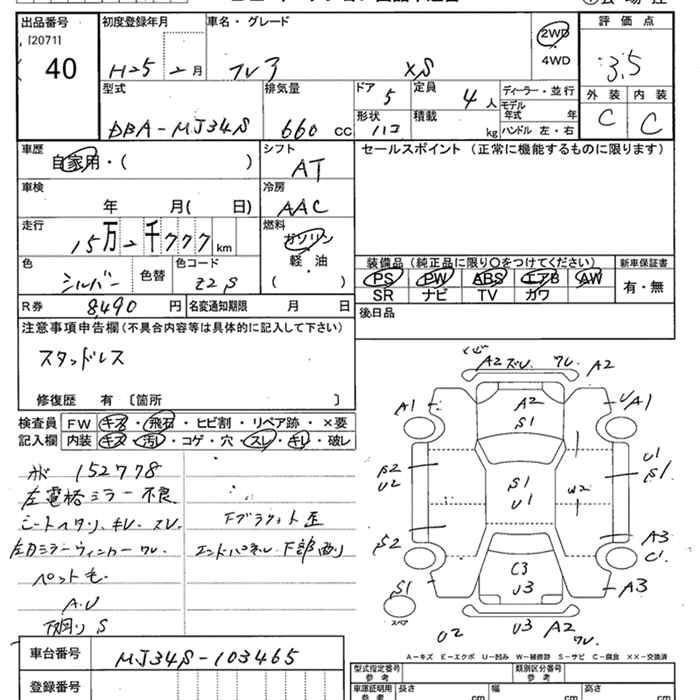 出品番号
初度登録年月
車名・グレード
評価点
[2071]
40
H25 2月
フレア
XS
2WD
4WD
3.5
型式
排気量
ドア 5
定員 4人
ディーラー・並行
外装
内装
DBA-MJ34S
660 CC
形状 ハコ
積載 kg
モデル年式 年
ハンドル 左・右
C
C
車歴
自家用・( )
シフト
AT
セールスポイント(正常に機能するものに限ります)
車検
年 月( 日)
冷房
AAC
走行
15万2千777km
燃料
ガソリン
軽・油
( )
色
シルバー
色替
色コード
Z2S
装備品(純正品に限り〇をつけてください)
新車保証書
PS PW ABS エアB AW
SR ナビ TV カワ
有・無
R券 8490 円
名変通知期限 月 日
後日品
注意事項申告欄(不具合内容等は具体的に記入して下さい)
スタッドレス
修復歴 有〔箇所 〕
検査員
記入欄
FW キズ・飛石・ヒビ割・リペア跡・×要
内装 キズ・汚レ・コゲ・穴・スレ・キレ・破レ
メ 152778
左電格ミラー不良
シートヘタリ、キレ、スレ
左ドミラーウィンカーワレ
ペット毛
A.U
下廻りS
Fブラケット歪
エンドパネル下部凹り
A2 ズレ ワレ A2
A2
S1
A1
UA1
S2
U2
U1
S1
S1
U1
W2
S2
A3
C1
S1
C3
U3
A3
スペア
U2
U3 A2 ワレ
A-キズ E-エクボ U-凹み W-補修跡 S-サビ C-腐食 XX-交換済
車台番号 MJ34S-103465
登録番号
型式指定番号 参考
類別区分番号 参考
車庫証明用 参考
長さ cm
幅 cm
高さ cm